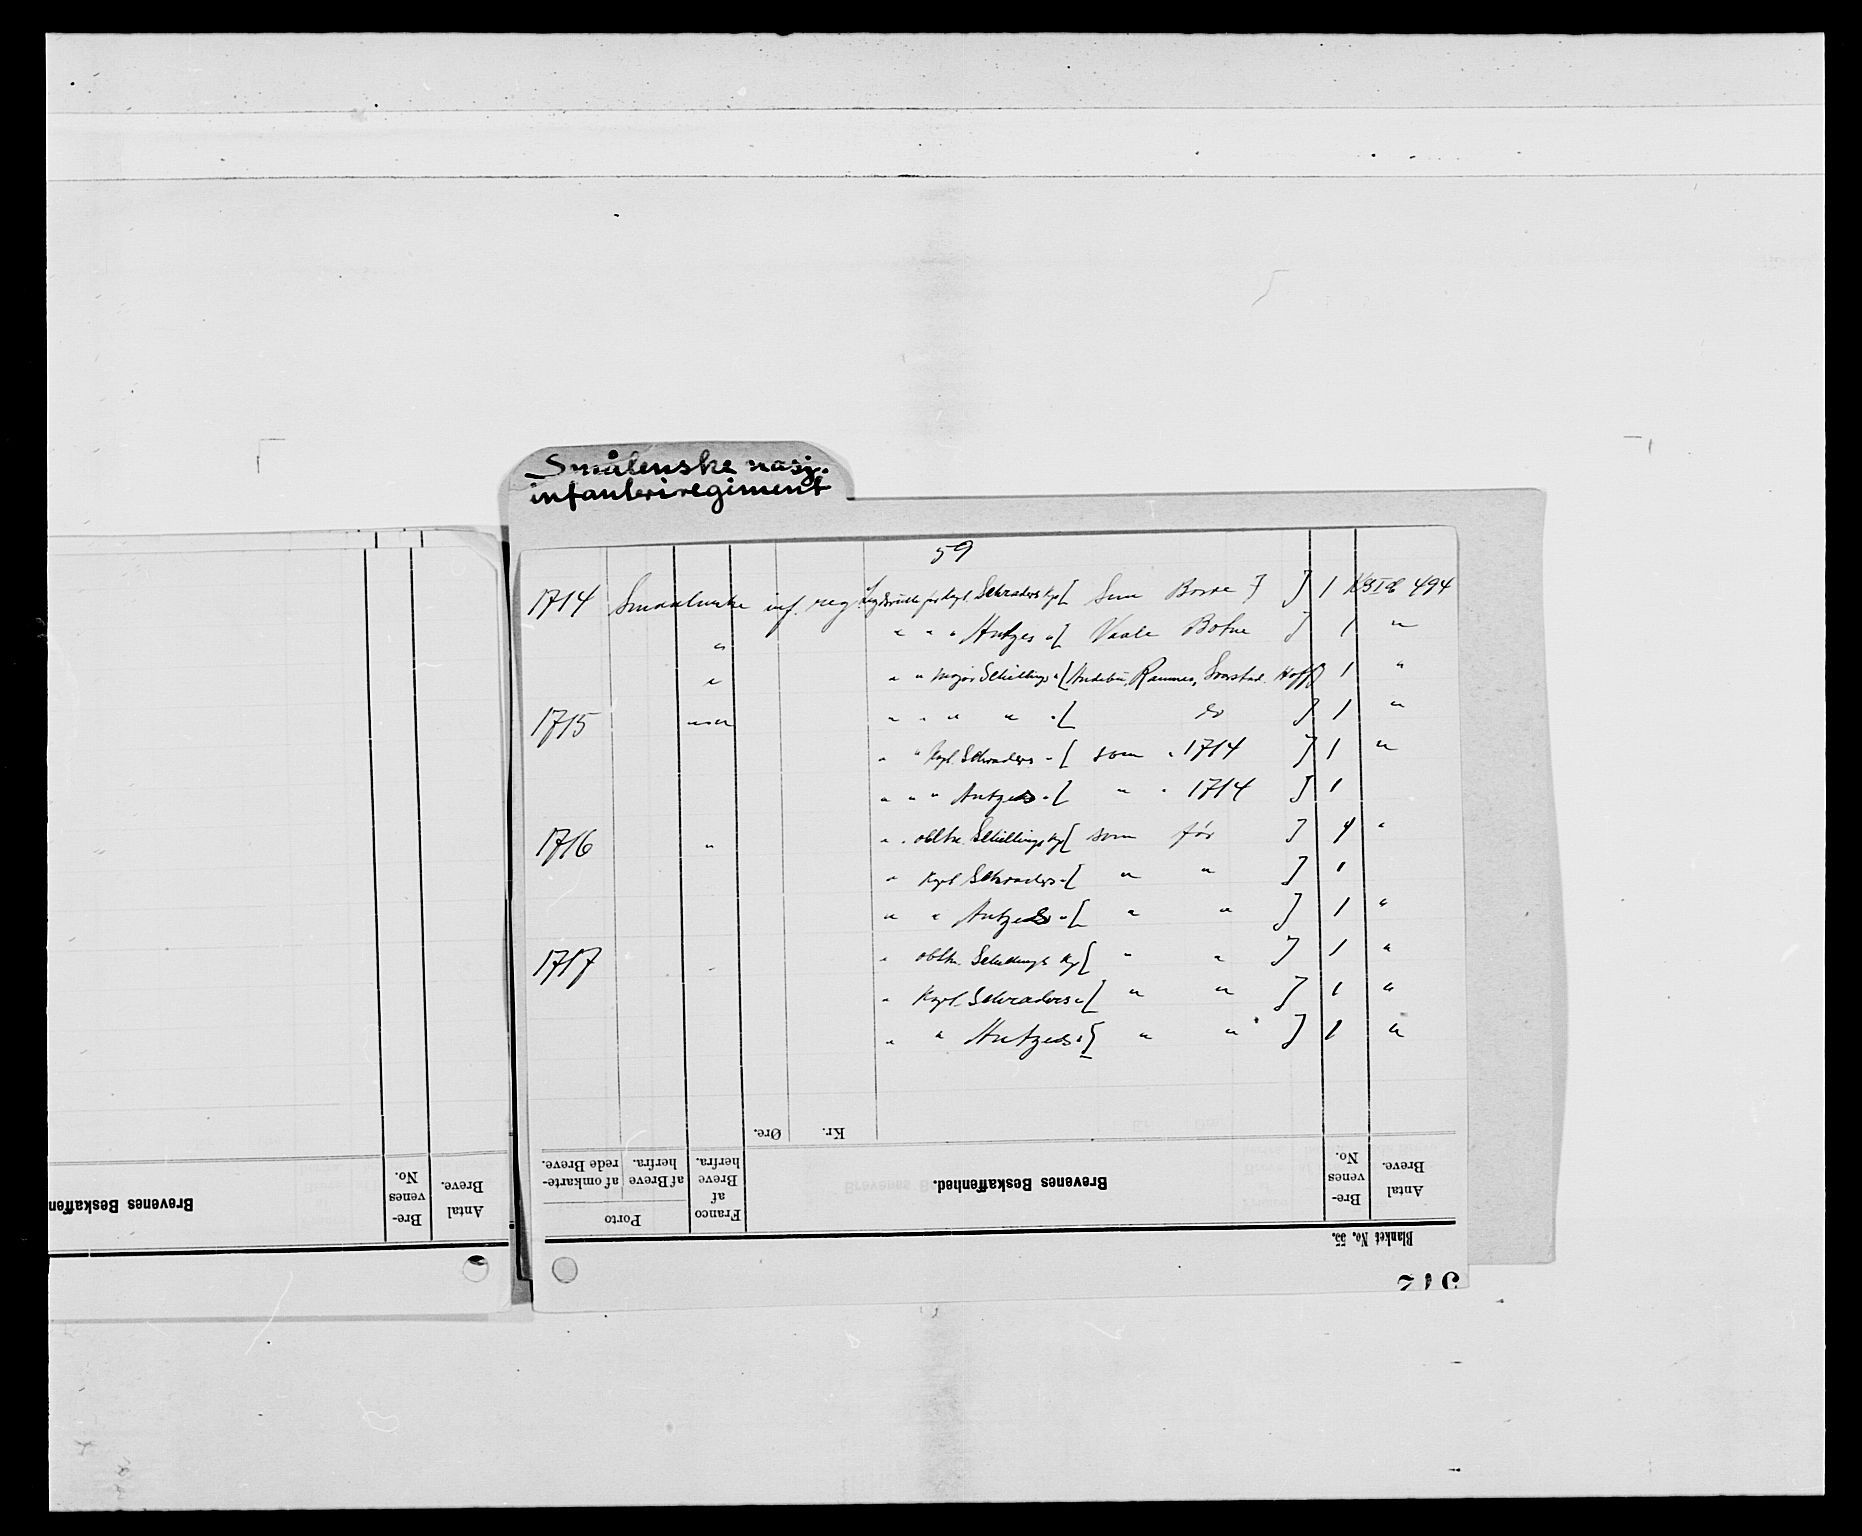 Smålenske nasj.
infanteriregiment
59
1714 Smaalenske inf. reg. for Kapt. Schraders Kp [ Sem Borre ] ] 1 494
" " " " Hutzes " [ Vaale Botne ] 1 "
" " " Major Schillings " [ Andebu, Ramnes, Svarstad. Hoff ] 1 "
1715 " " " " " " " " [ do ] 1 "
" " Kapt. Schraders " [ som " 1714 ] 1 "
" " " Hutzes " [ " " 1714 ] 1
1716 " " " obltn. Schillings Kp [ som før ] 4 "
" Kapt Schraders " [ " " ] 1
" " Hutzes " [ " " ] 1 "
1717 " " obltn. Schillings Kp [ " " ] 1 "
" Kapt. Schraders " [ " " ] 1 "
" " Hutzes " [ " " ] 1 "
Øre. Kr.
Porto
af omkarte-
rede Breve.
af Breve
herfra.
Franco
af
Breve
herfra.
Brevenes Beskaffenhed.
Bre-
venes
No.
Antal
Breve.
Blanket No. 55.
Brevenes Beskaffen
Bre-
venes
No.
Antal
Breve.